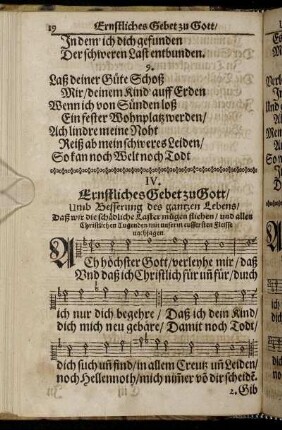 19 Ernstliches Gebet zu Gott/
In dem ich dich gefunden
Der schweren Last entbunden.
9.
Laß deiner Güte Schoß
Mir/deinem Kind auff Erden
Wenn ich von Sünden loß
Ein fester Wohnplatz werden/
Ach lindre meine Noht
Reiß ab mein schweres Leiden/
So kan noch Welt noch Todt
IV.
Ernstliches Gebet zu Gott/
Umb Besserung des gantzen Lebens/
Daß wir die schädliche Laster mügen fliehen/ und allen
Christlichen Tugenden mit unserm eussersten Fleisse
nachjagen.
ACh höchster Gott/verleyhe mir/ daß
Und daß ich Christlich für uñ für/durch
ich nur dich begehre/ Daß ich dein Kind/
dich mich neu gebäre/ Damit noch Todt/
dich such uñ find/ in allem Creutz uñ Leiden/
noch Hellennoth/ mich nim̃er võ dir scheidẽ.
2. Gib